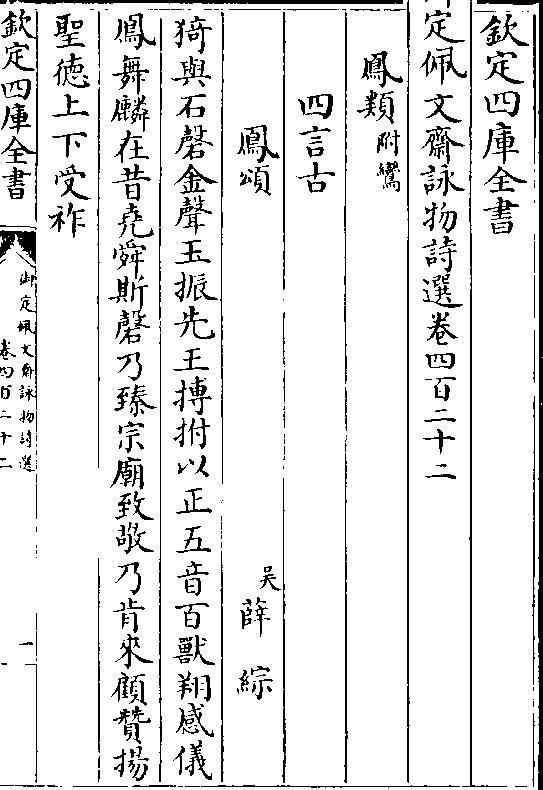 欽定四庫全書
定佩文齋詠物詩選卷四百二十二
鳳類附鸞
四言古
鳳頌
吳薛綜
猗與石磬金聲玉振先王摶拊以正五音百獸翔感儀
鳳舞麟在昔堯舜斯磬乃臻宗廟致敬乃肯來顧贊揚
聖徳上下受祚
欽定四庫全書
御定佩文齋詠物詩選
卷四百二十二
一